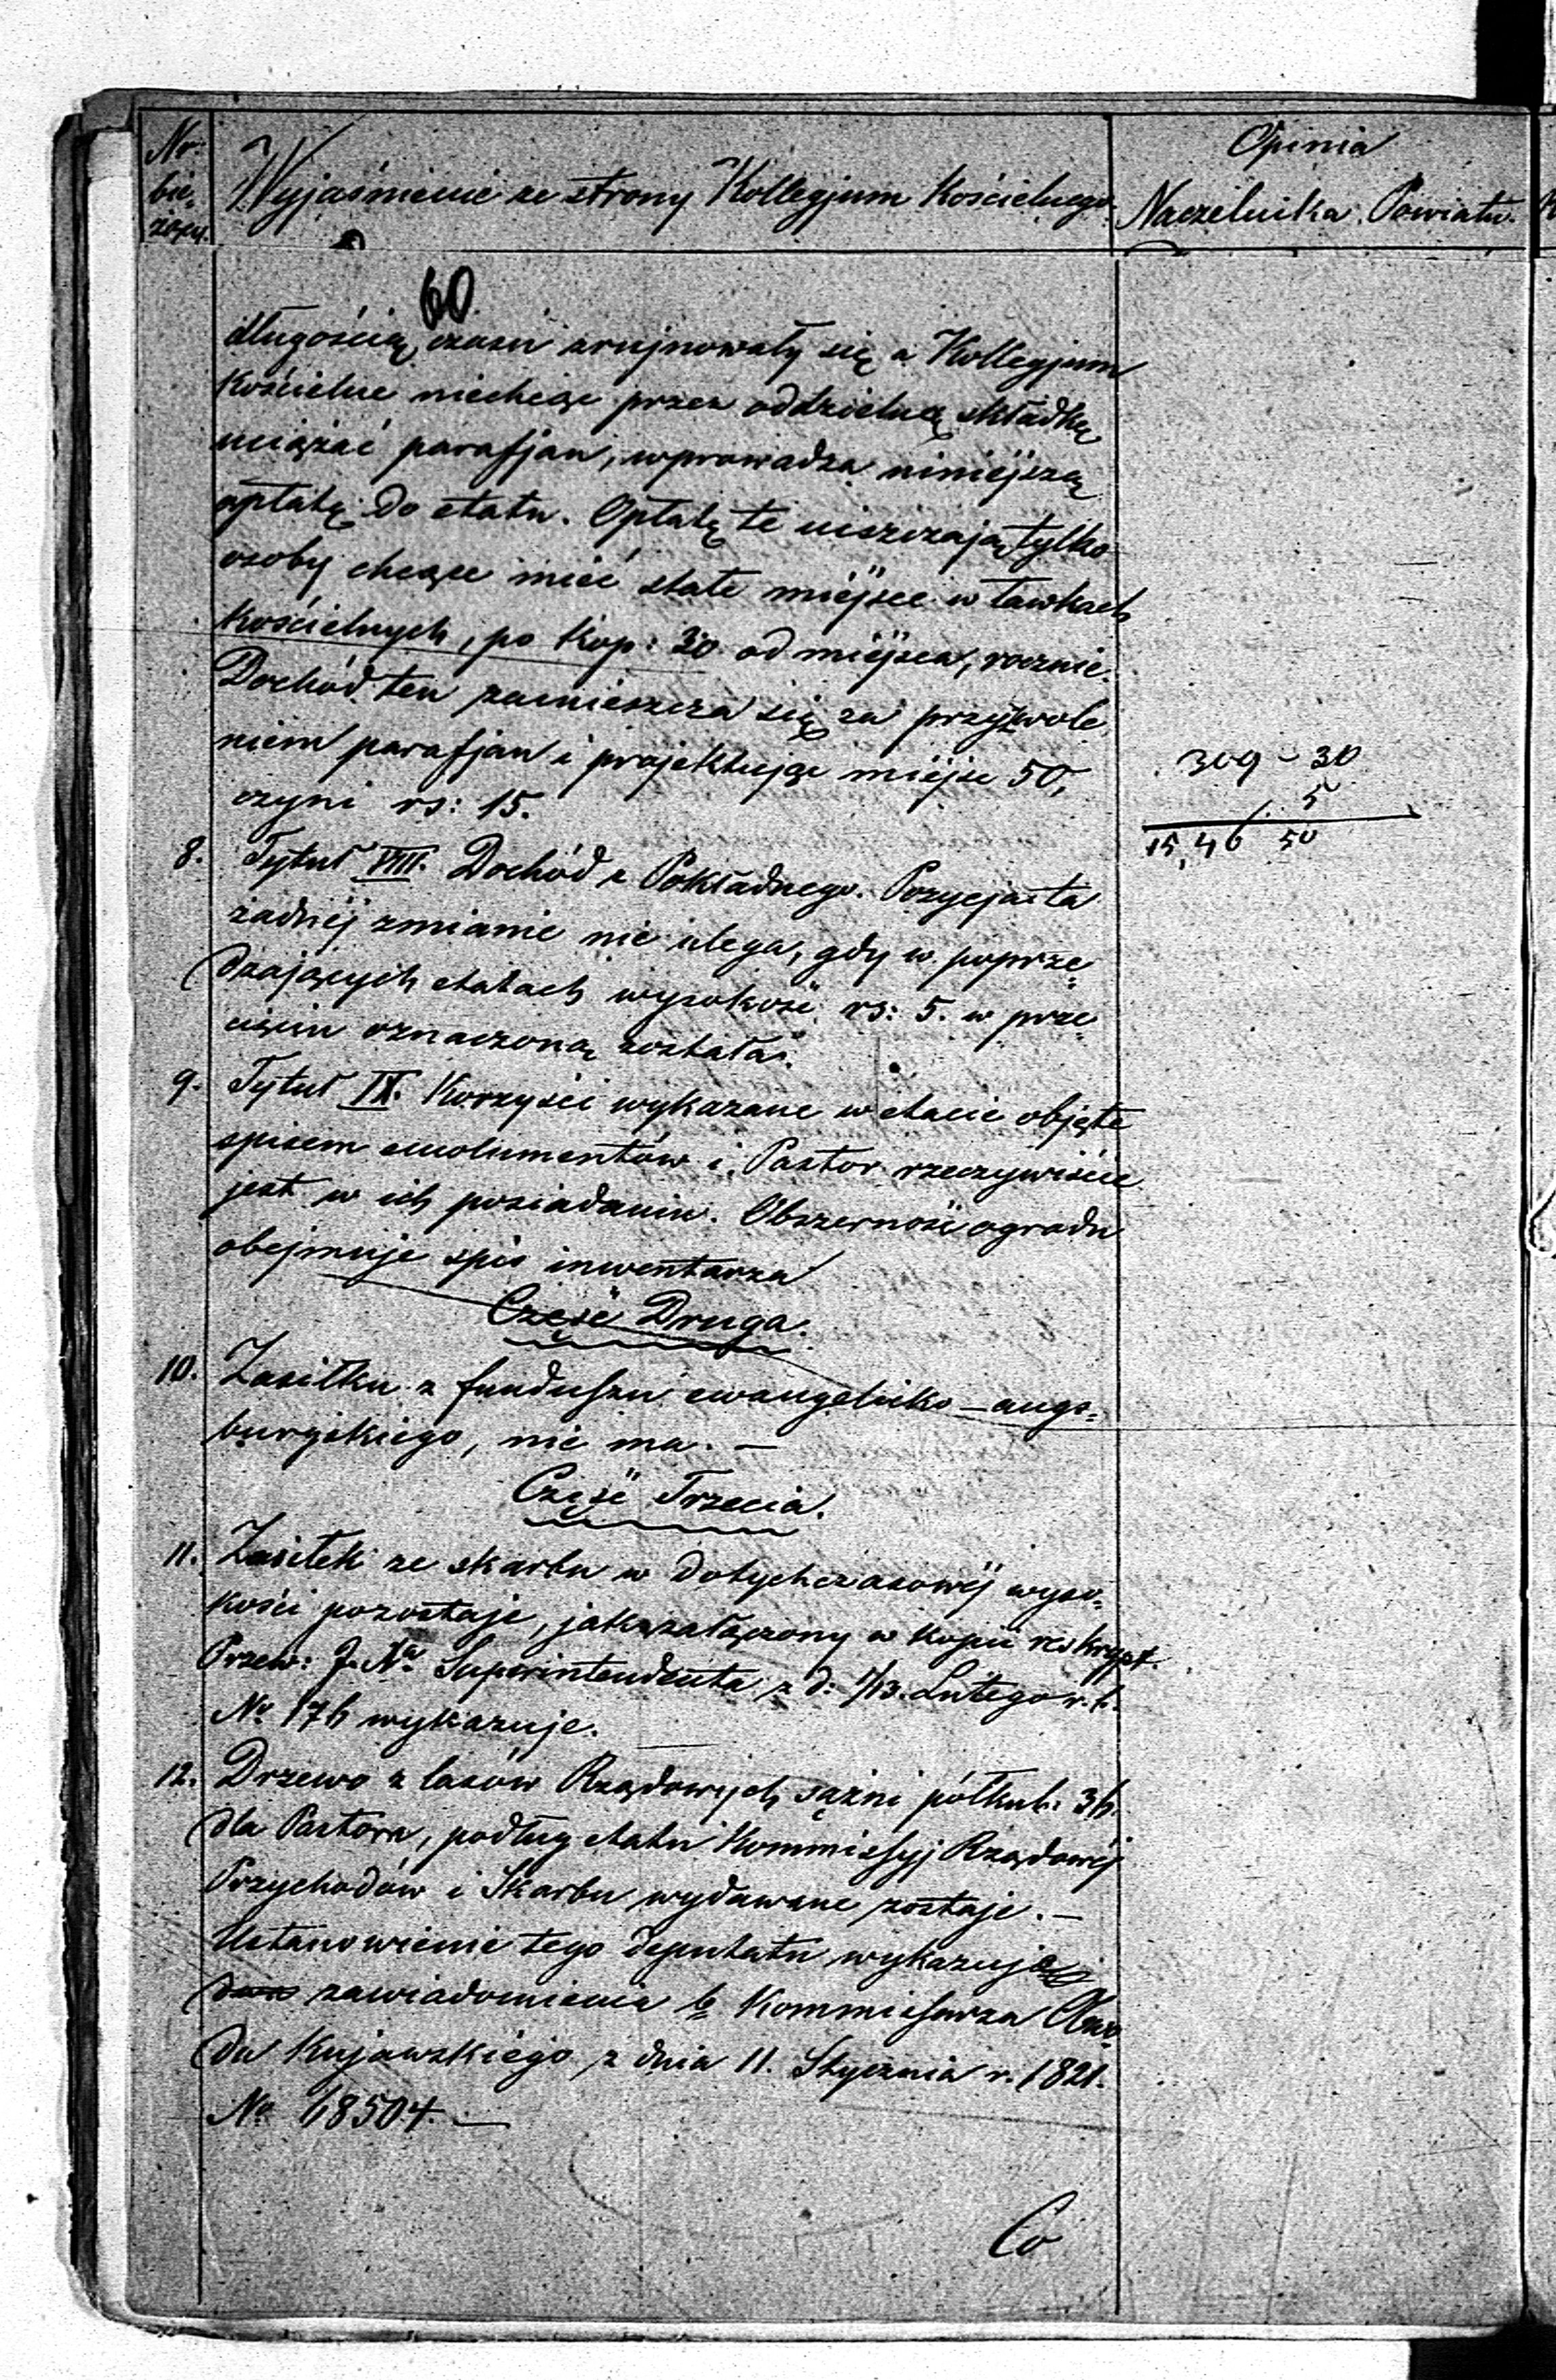 Nr:
bie=
żący.
Wyjaśnienie ze strony Kollegjum Kościelnego.
Opinia
Naczelnika Powiatu.
60
długością czasu zrujnowały się a Kollegjum
Kościelne niechcąc przez oddzielną składkę
uciążać parafjan, wprowadza niniejszą
opłatę do etatu. Opłatę te uiszczają tylko
osoby chcące mieć stałe miéjsce w ławkach
Kościelnych, po Kop: 30 od miéjsca, rocznie.
Dochód ten zamieszcza się za przyzwole
niem parafjan i projektując miéjsc 50,
czyni rs: 15.
309 - 30
5
15,46 50
8. Tytuł VIII. Dochód z Pokładnego. Pozycja ta
żadnéj zmianie nie ulega, gdy w poprze=
dzających etatach wysokość rs: 5. w prze=
cięciu oznaczoną została.
9. Tytuł IX. Korzyści wykazane w etacie objęte
spisem emolumentów i Pastor rzeczywiście
jest w ich posiadaniu. Obszerność ogrodu
obejmuje spis inwentarza
Część Druga.
10. Zasiłku z funduszu ewangelicko-augs=
burgskiego, nie ma. —
Część Trzecia.
11. Zasiłek ze skarbu w dotychczasowéj wyso=
kości pozostaje, jak załączony w kopii reskrypt
Przew: J. Superintendenta z d: 1/13. Lutego r. b.
No 176 wykazuje.
12. Drzewo z lasów Rządowych sążni półkub: 36.
dla Pastora, podług etatu Kommissyj Rządowéj
Przychodów i Skarbu wydawane zostaje. —
Ustanowienie tego deputatu wykazuje
zawiadomienie b. Kommissarza Obwo=
du Kujawskiego z dnia 11. Stycznia r. 1821.
No 68504. —
Co